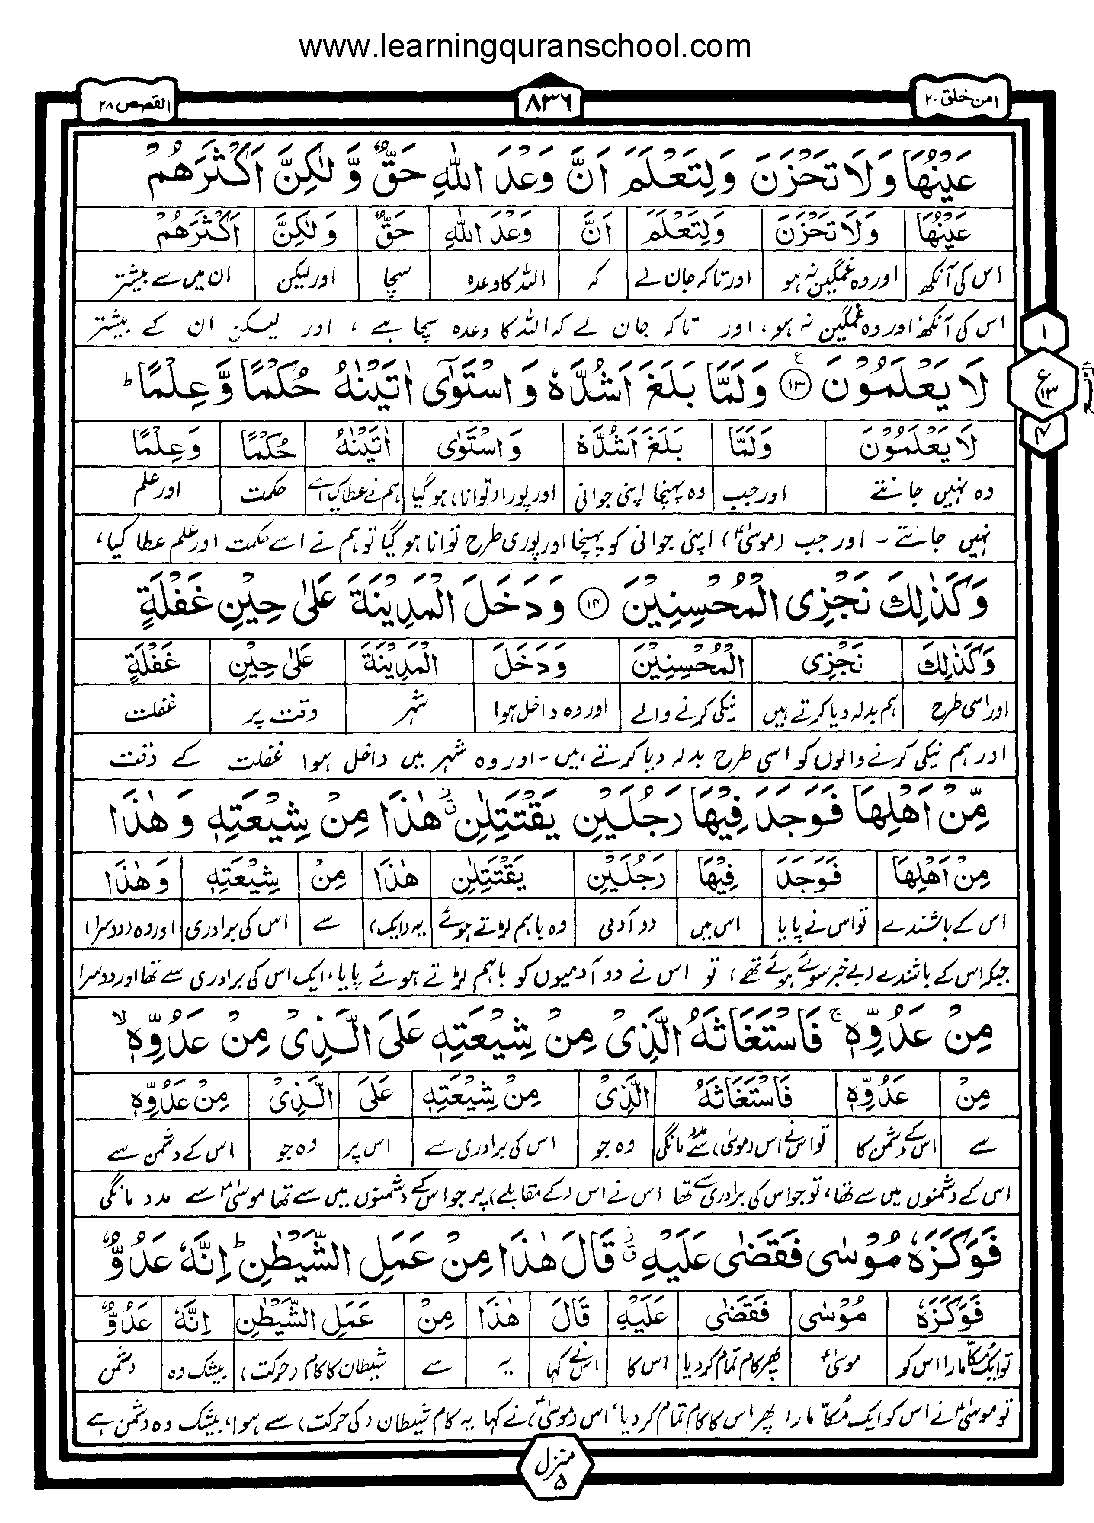 www.learningquranschool.com
امن خلق ۲۰
۸۳۶
القصص ۲۸
عَيْنُهَا وَلَا تَحْزَنَ وَلِتَعْلَمَ اَنَّ وَعْدَ اللّٰهِ حَقٌّ وَّ لٰكِنَّ اَكْثَرَهُمْ
عَيْنُهَا وَلَا تَحْزَنَ وَلِتَعْلَمَ اَنَّ وَعْدَ اللّٰهِ حَقٌّ وَلٰكِنَّ اَكْثَرَهُمْ
اس کی آنکھ اور وہ غمگین نہ ہو اور تاکہ جان لے کہ اللہ کا وعدہ سچا اور لیکن ان میں سے بیشتر
اس کی آنکھ اور وہ غمگین نہ ہو، اور تاکہ جان لے کہ اللہ کا وعدہ سچا ہے ، اور لیکن ان کے بیشتر
۱
ع ۱۳
۴
لَا يَعْلَمُوْنَ ۱۳ وَلَمَّا بَلَغَ اَشُدَّهٗ وَاسْتَوٰٓى اٰتَيْنٰهُ حُكْمًا وَّعِلْمًا ط
لَا يَعْلَمُوْنَ وَلَمَّا بَلَغَ اَشُدَّهٗ وَاسْتَوٰٓى اٰتَيْنٰهُ حُكْمًا وَعِلْمًا
وہ نہیں جانتے اور جب وہ پہنچا اپنی جوانی اور پورا (توانا) ہوگیا ہم نے عطا کیا اسے حکمت اور علم
نہیں جانتے - اور جب (موسیٰؑ) اپنی جوانی کو پہنچا اور پوری طرح توانا ہوگیا تو ہم نے اسے حکمت اور علم عطا کیا،
وَكَذٰلِكَ نَجْزِى الْمُحْسِنِيْنَ ۱۴ وَدَخَلَ الْمَدِيْنَةَ عَلٰى حِيْنِ غَفْلَةٍ
وَكَذٰلِكَ نَجْزِى الْمُحْسِنِيْنَ وَدَخَلَ الْمَدِيْنَةَ عَلٰى حِيْنِ غَفْلَةٍ
اور اسی طرح ہم بدلہ دیا کرتے ہیں نیکی کرنے والے اور وہ داخل ہوا شہر وقت پر غفلت
اور ہم نیکی کرنے والوں کو اسی طرح بدلہ دیا کرتے ہیں - اور وہ شہر میں داخل ہوا غفلت کے وقت
مِّنْ اَهْلِهَا فَوَجَدَ فِيْهَا رَجُلَيْنِ يَقْتَتِلٰنِ هٰذَا مِنْ شِيْعَتِهٖ وَهٰذَا
مِنْ اَهْلِهَا فَوَجَدَ فِيْهَا رَجُلَيْنِ يَقْتَتِلٰنِ هٰذَا مِنْ شِيْعَتِهٖ وَهٰذَا
اس کے باشندے تو اس نے پایا اس میں دو آدمی وہ باہم لڑتے ہوئے یہ (ایک) سے اس کی برادری اور وہ (دوسرا)
جبکہ اس کے باشندے (بے خبر سوئے ہوئے تھے) تو اس نے دو آدمیوں کو باہم لڑتے ہوئے پایا، ایک اس کی برادری سے تھا اور دوسرا
مِنْ عَدُوِّهٖ ج فَاسْتَغَاثَهُ الَّذِىْ مِنْ شِيْعَتِهٖ عَلَى الَّذِىْ مِنْ عَدُوِّهٖ لا
مِنْ عَدُوِّهٖ فَاسْتَغَاثَهُ الَّذِىْ مِنْ شِيْعَتِهٖ عَلَى الَّذِىْ مِنْ عَدُوِّهٖ
سے اس کے دشمن کا تو اس نے اس (موسیٰ) سے مدد مانگی وہ جو اس کی برادری سے اس پر وہ جو اس کے دشمن سے
اس کے دشمنوں میں سے تھا، تو جو اس کی برادری سے تھا اس نے اس (کے مقابلے) پر جو اس کے دشمنوں میں سے تھا موسیٰؑ سے مدد مانگی
فَوَكَزَهٗ مُوْسٰى فَقَضٰى عَلَيْهِ قَالَ هٰذَا مِنْ عَمَلِ الشَّيْطٰنِ ط اِنَّهٗ عَدُوٌّ
فَوَكَزَهٗ مُوْسٰى فَقَضٰى عَلَيْهِ قَالَ هٰذَا مِنْ عَمَلِ الشَّيْطٰنِ اِنَّهٗ عَدُوٌّ
تو ایک مکا مارا اس کو موسیٰؑ پھر کام تمام کر دیا اس کا اس نے کہا یہ سے شیطان کا کام (حرکت) بیشک وہ دشمن
تو موسیٰؑ نے اس کو ایک مُکّا مارا پھر اس کا کام تمام کر دیا، اس (موسیٰؑ) نے کہا یہ کام شیطان (کی حرکت) سے ہوا، بیشک وہ دشمن ہے
منزل ۵